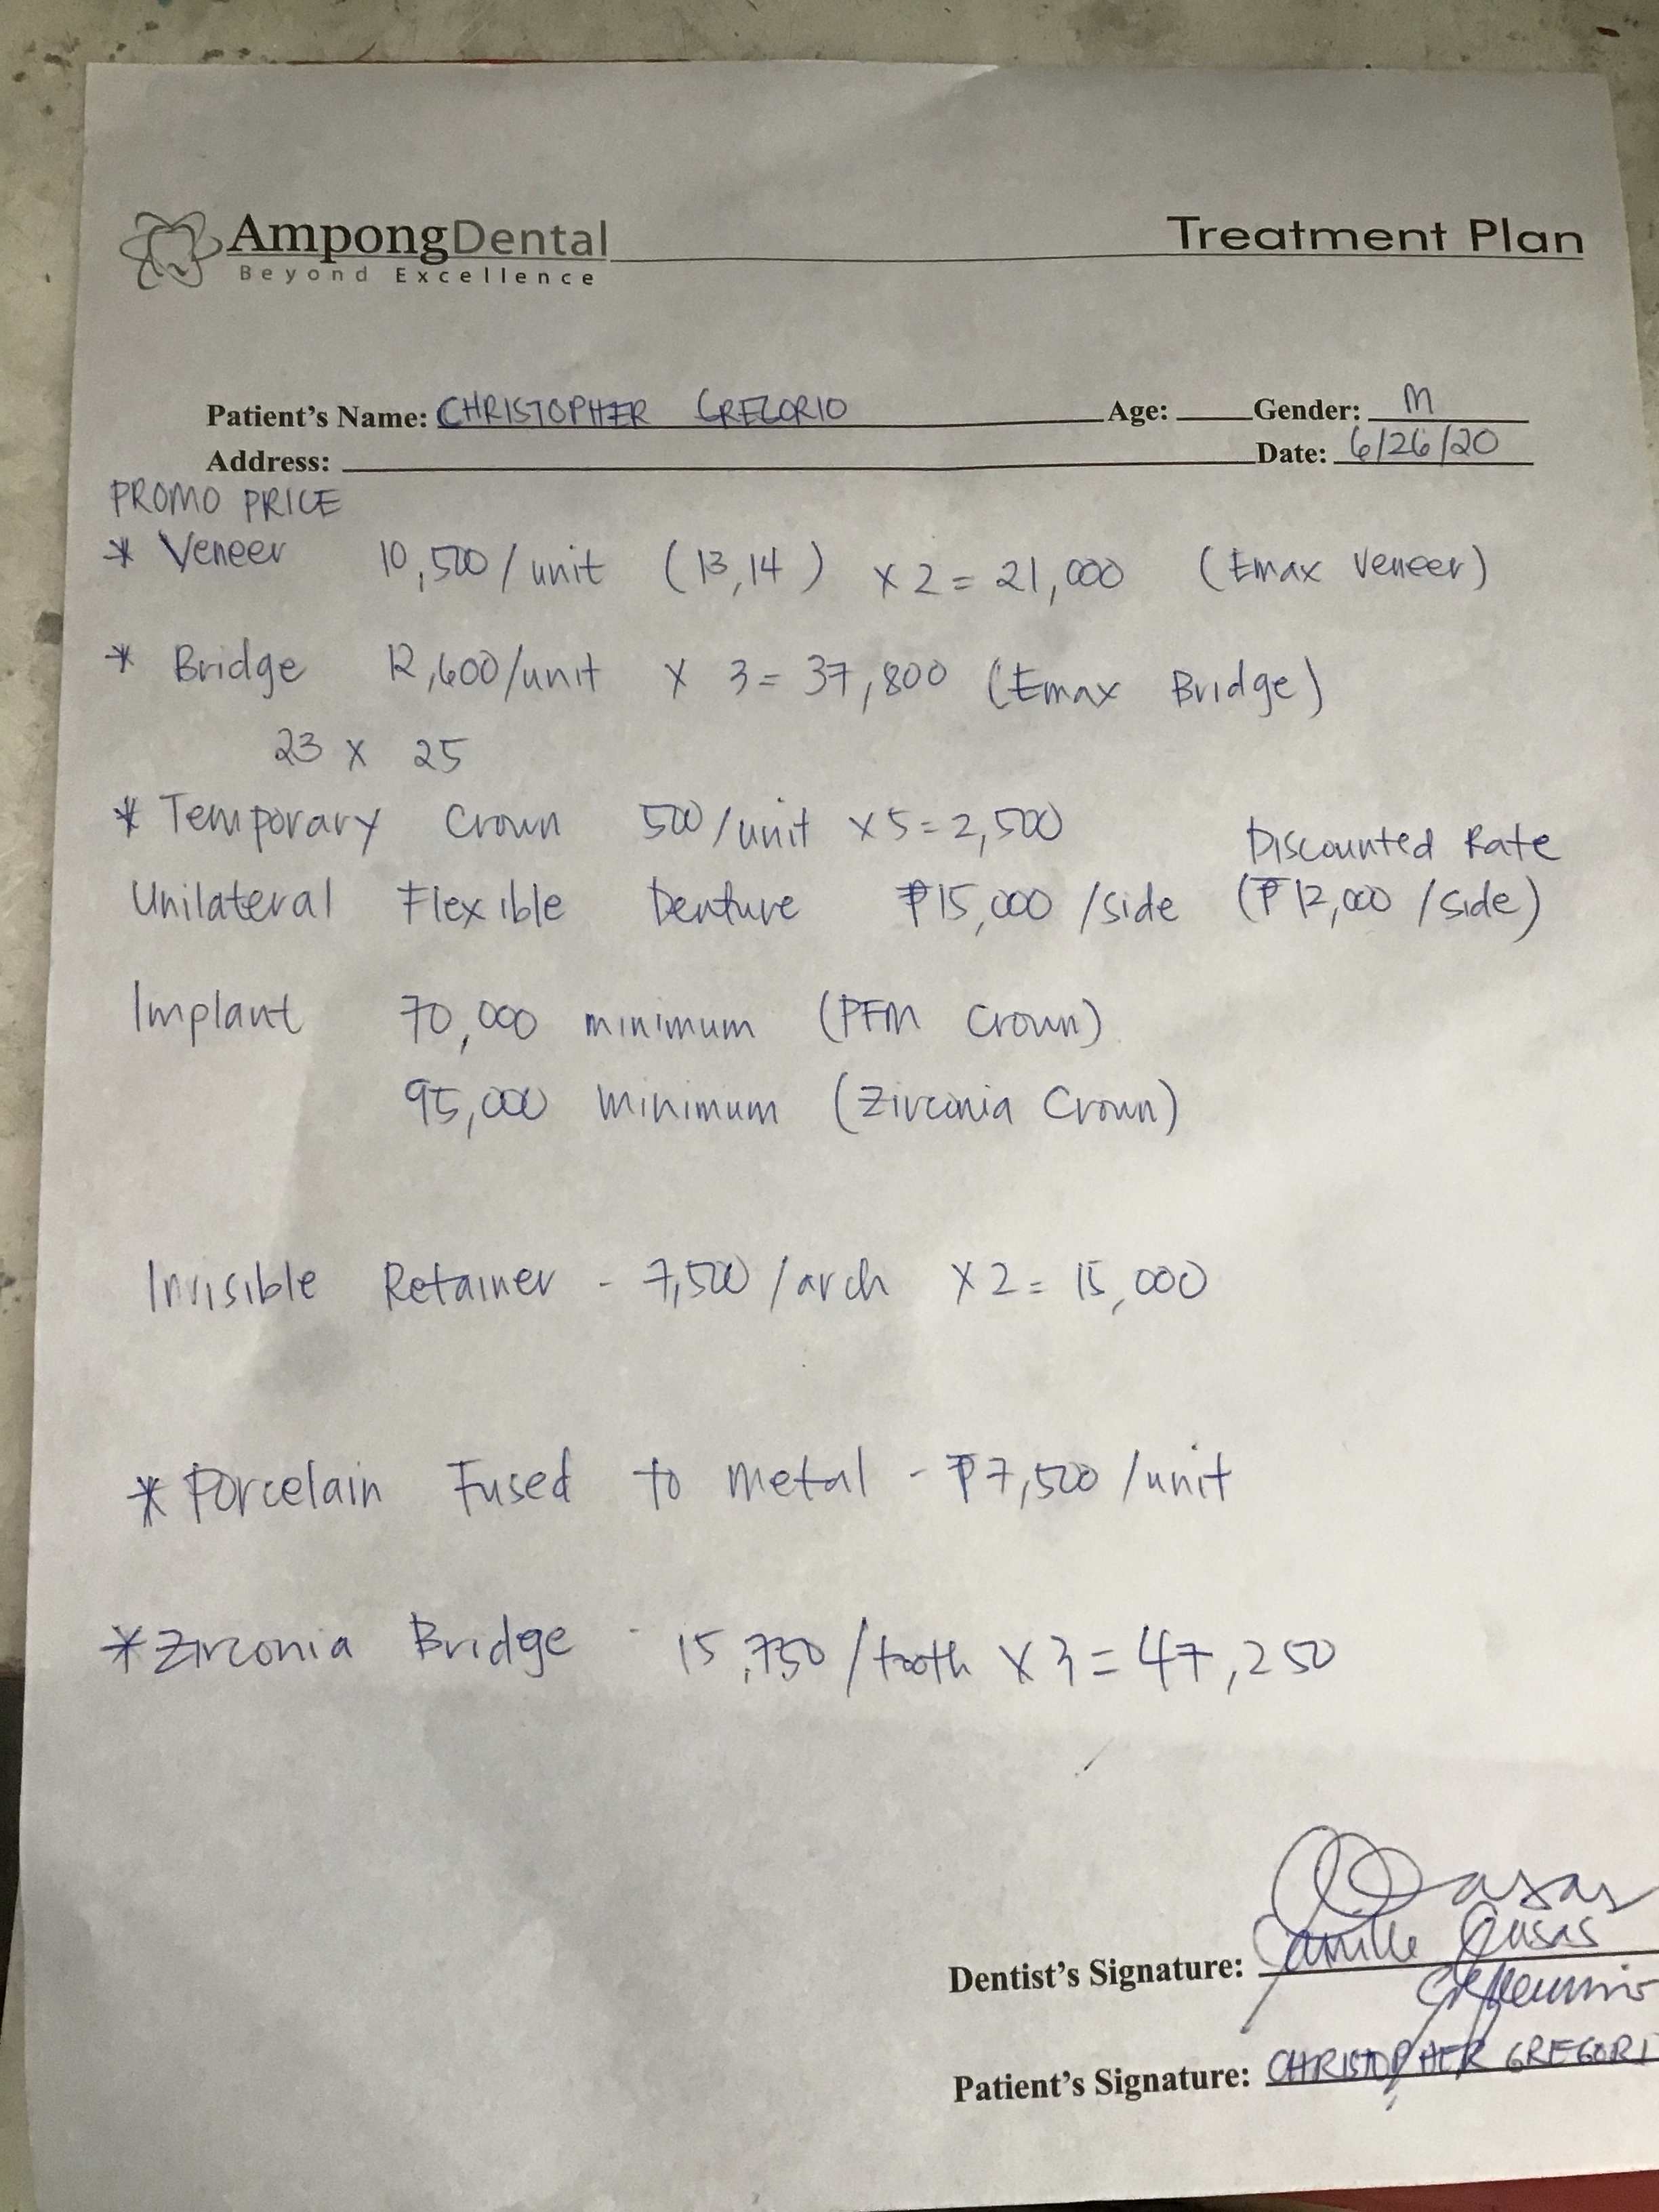 AmpongDental
Beyond Excellence
Treatment Plan
Patient's Name: CHRISTOPHER GREGORIO Age: Gender: M
Address: Date: 6/26/20
PROMO PRICE
* Veneer 10,500/unit (13,14) x2 = 21,000 (Emax Veneer)
* Bridge 12,600/unit x 3 = 37,800 (Emax Bridge)
23 x 25
* Temporary Crown 500/unit x5 = 2,500
Discounted Rate
Unilateral Flexible Denture ₱15,000 /side (₱12,000 /side)
Implant 70,000 minimum (PFM Crown)
95,000 minimum (Zirconia Crown)
Invisible Retainer - 7,500 /arch x2 = 15,000
* Porcelain Fused to Metal - ₱7,500 /unit
* Zirconia Bridge - 15,750 /tooth x3 = 47,250
Dentist's Signature: Camille
Patient's Signature: CHRISTOPHER GREGORI